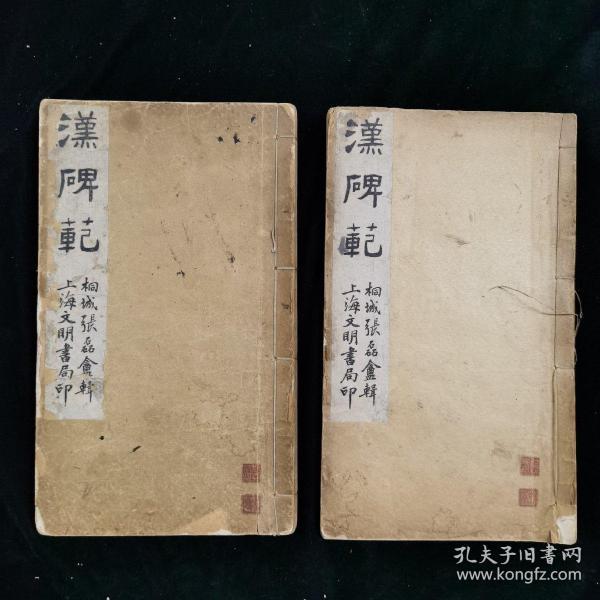 漢碑範
桐城張磊盦輯
上海文明書局印
漢碑範
桐城張磊盦輯
上海文明書局印
孔夫子旧書网
www.kongfz.com